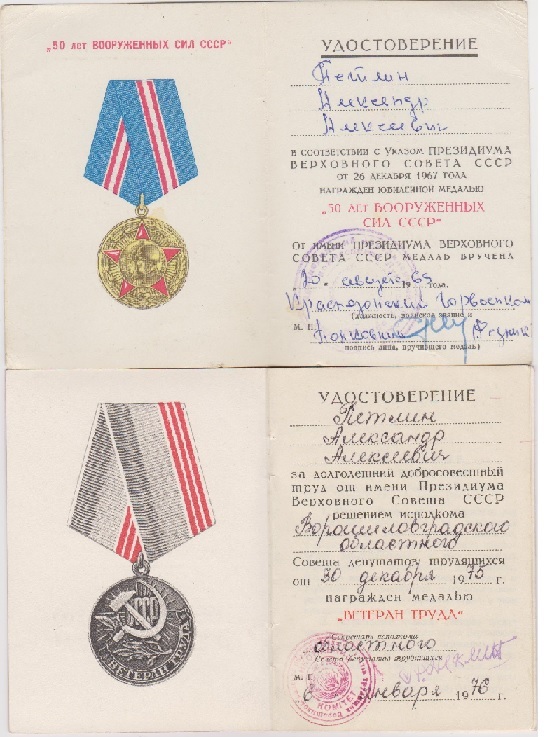 „50 лет ВООРУЖЕННЫХ СИЛ СССР"
УДОСТОВЕРЕНИЕ
Петлин
Александр
Алексеевич
В СООТВЕТСТВИИ С УКАЗОМ ПРЕЗИДИУМА
ВЕРХОВНОГО СОВЕТА СССР
ОТ 26 ДЕКАБРЯ 1967 ГОДА
НАГРАЖДЕН ЮБИЛЕЙНОЙ МЕДАЛЬЮ
„50 ЛЕТ ВООРУЖЕННЫХ
СИЛ СССР"
ОТ ИМЕНИ ПРЕЗИДИУМА ВЕРХОВНОГО
СОВЕТА СССР МЕДАЛЬ ВРУЧЕНА
20 1969 года.
Краснодонский Горвоенком
(должность, воинское звание и
М. П.
подпись лица, вручившего медаль)
УДОСТОВЕРЕНИЕ
Петлин
Александр
Алексеевич
за долголетний добросовестный
труд от имени Президиума
Верховного Совета СССР
решением исполкома
Ворошиловградского
областного
Совета депутатов трудящихся
от 30 декабря 1975 г.
награжден медалью
„ВЕТЕРАН ТРУДА"
Секретарь исполкома
областного
Совета депутатов трудящихся
М. П.
6 января 1976 г.
ВЕТЕРАН ТРУДА
КОМИТЕТ